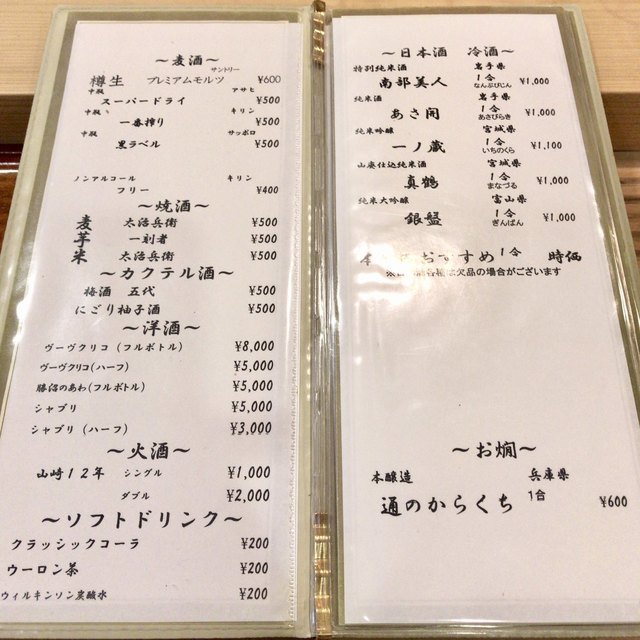 ～麦酒～
サントリー
樽生 プレミアムモルツ ¥600
中瓶 アサヒ
スーパードライ ¥500
中瓶 キリン
一番搾り ¥500
中瓶 サッポロ
黒ラベル ¥500
ノンアルコール キリン
フリー ¥400
～焼酒～
麦 太治兵衛 ¥500
芋 一刻者 ¥500
米 太治兵衛 ¥500
～カクテル酒～
梅酒 五代 ¥500
にごり柚子酒 ¥500
～洋酒～
ヴーヴクリコ(フルボトル) ¥8,000
ヴーヴクリコ(ハーフ) ¥5,000
勝沼のあわ(フルボトル) ¥5,000
シャブリ ¥5,000
シャブリ(ハーフ) ¥3,000
～火酒～
山崎12年 シングル ¥1,000
ダブル ¥2,000
～ソフトドリンク～
クラッシックコーラ ¥200
ウーロン茶 ¥200
ウィルキンソン炭酸水 ¥200
～日本酒 冷酒～
特別純米酒 岩手県
南部美人 1合 ¥1,000
なんぶびじん
純米酒 岩手県
あさ開 1合 ¥1,000
あさびらき
純米吟醸 宮城県
一ノ蔵 1合 ¥1,100
いちのくら
山廃仕込純米酒 宮城県
真鶴 1合 ¥1,000
まなづる
純米大吟醸 富山県
銀盤 1合 ¥1,000
ぎんばん
おすすめ 1合 時価
欠品の場合がございます
～お燗～
本醸造 兵庫県
通のからくち 1合 ¥600